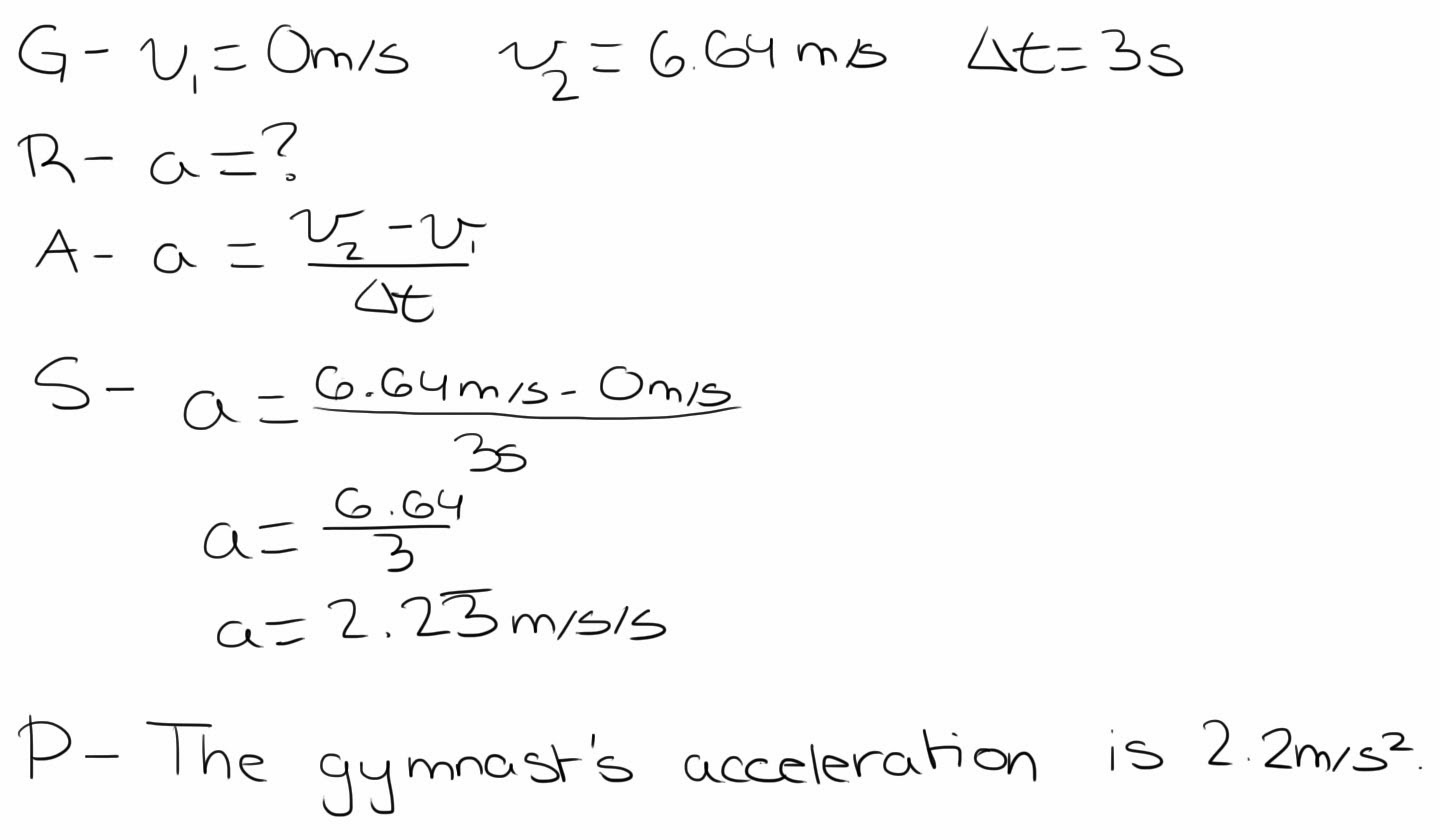 G - v₁ = 0m/s v₂ = 6.64 m/s Δt = 3s
R - a = ?
A - a = (v₂ - v₁)/Δt
S - a = (6.64m/s - 0m/s)/3s
a = 6.64/3
a = 2.23̅ m/s/s
P - The gymnast's acceleration is 2.2m/s².